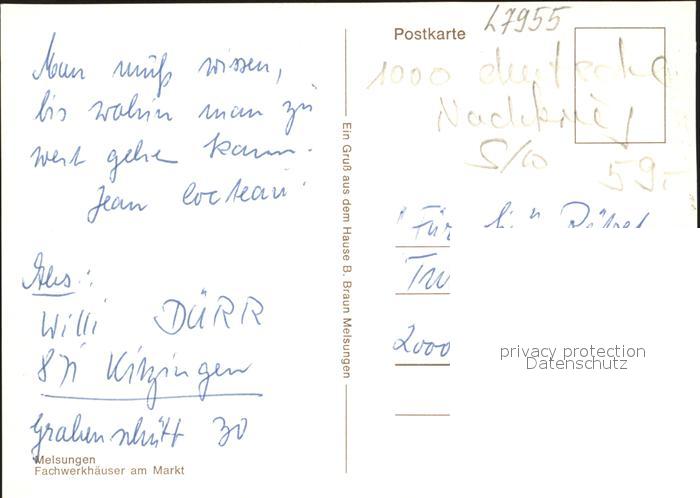 Man muß wissen,
bis wohin man zu
weit gehen kann.
Jean Cocteau
Abs.:
Willi DÜRR
871 Kitzingen
Grabenschütt 30
Melsungen
Fachwerkhäuser am Markt
Ein Gruß aus dem Hause B. Braun Melsungen
Postkarte
L7955
1000 deutsche
Nachkrieg
S/w
59.-
Für
2000
privacy protection
Datenschutz